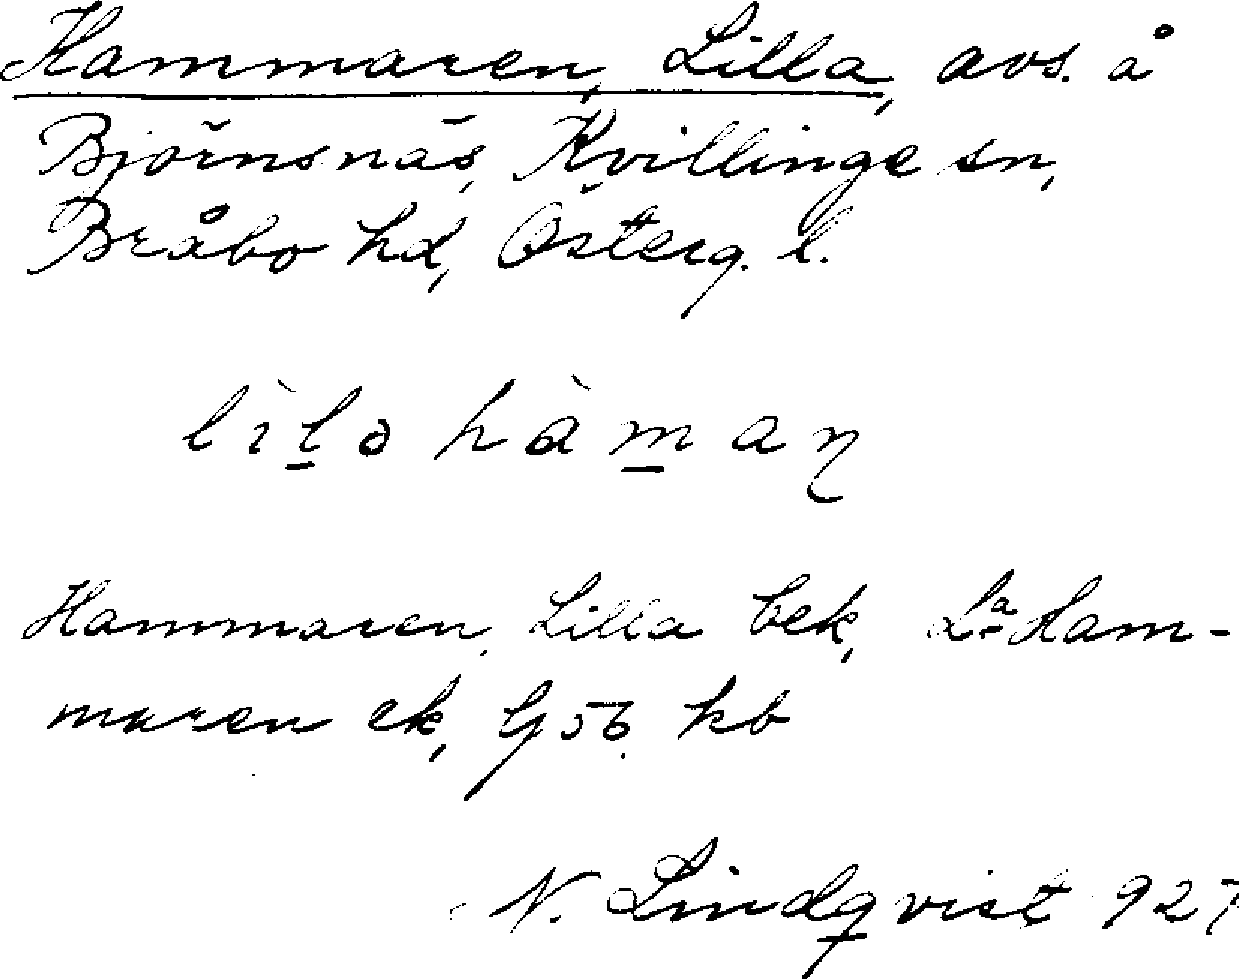 Hammaren, Lilla, avs. å
Björnsnäs, Kvillinge sn,
Bråbo hd, Österg. l.
lìla hàman
Hammaren, Lilla bek, La Ham-
maren ek, G56. kb
N. Lindqvist 927